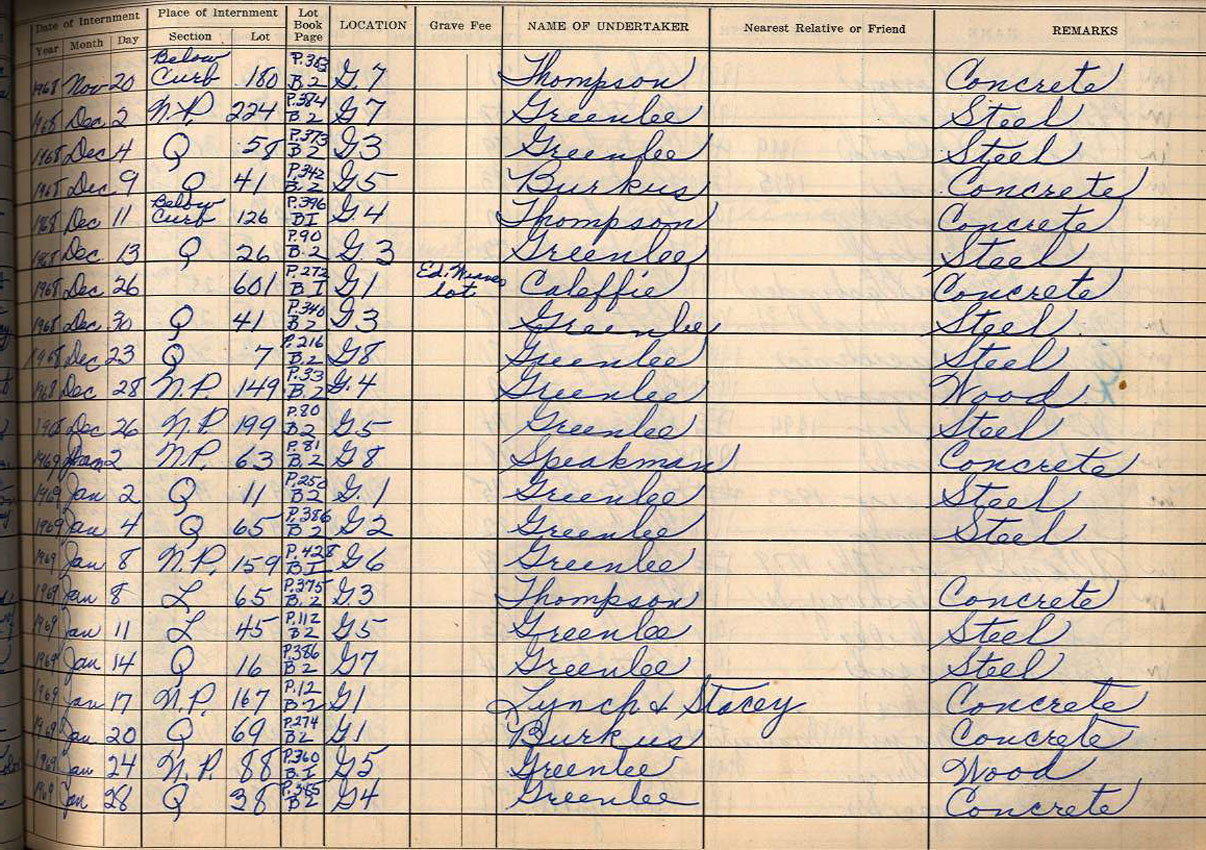 Date of Internment Place of Internment Lot Book Page LOCATION Grave Fee NAME OF UNDERTAKER Nearest Relative or Friend REMARKS
Year Month Day Section Lot
1968 Nov 20 Below Curb 180 P.383 B.2 G.7 Thompson Concrete
1968 Dec 2 N.P. 224 P.384 B.2 G7 Greenlee Steel
1968 Dec 4 Q 58 P.373 B2 G3 Greenlee Steel
1968 Dec 9 Q 41 P.342 B.2 G5 Burkus Concrete
1968 Dec 11 Below Curb 126 P.396 BI G.4 Thompson Concrete
1968 Dec 13 Q 26 P.90 B.2 G.3 Greenlee Steel
1968 Dec 26 601 P.272 B I G1 Ed. lot Caleffie Concrete
1968 Dec 30 Q 41 P.340 B2 G3 Greenlee Steel
1968 Dec 23 Q 7 P.216 B.2 G8 Greenlee Steel
1968 Dec 28 N.P. 149 P.33 B.2 G.4 Greenlee Wood
1968 Dec 26 N.P 199 P.80 B2 G5 Greenlee Steel
1969 Jan 2 N.P. 63 P.81 B.2 G8 Speakman Concrete
1969 Jan 2 Q 11 P.250 B2 G.1 Greenlee Steel
1969 Jan 4 Q 65 P.386 B2 G2 Greenlee Steel
1969 Jan 8 N.P. 159 P.428 BI G6 Greenlee
1969 Jan 8 L 65 P.375 B.2 G.3 Thompson Concrete
1969 Jan 11 L 45 P.112 B2 G5 Greenlee Steel
1969 Jan 14 Q 16 P.386 B2 G7 Greenlee Steel
1969 Jan 17 N.P. 167 P.12 B2 G1 Lynch & Stacey Concrete
1969 Jan 20 Q 69 P.274 B2 G1 Burkus Concrete
1969 Jan 24 N.P. 88 P.360 B.I G5 Greenlee Wood
1969 Jan 28 Q 38 B2 G4 Greenlee Concrete